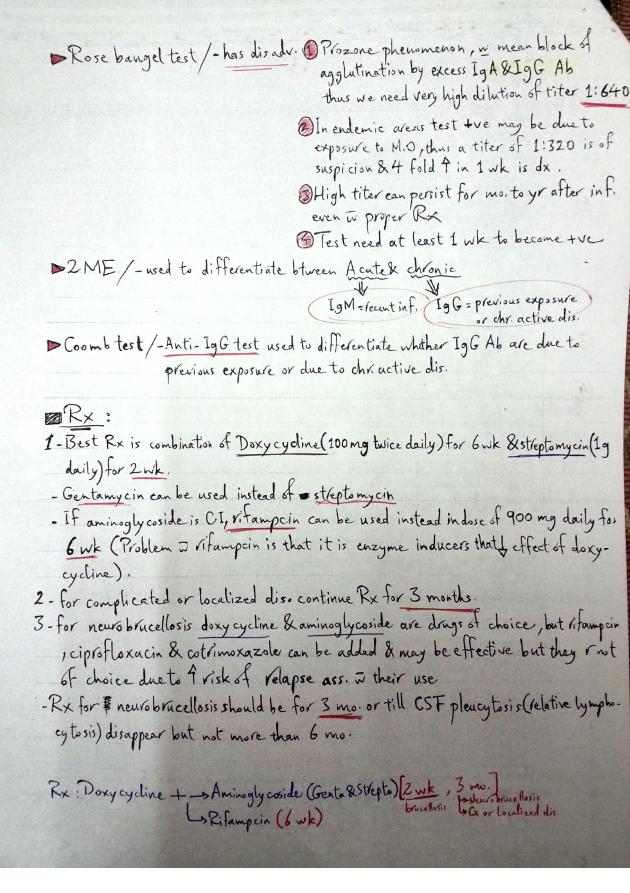 Rose bangel test/- has disadv. ① Prozone phenomenon, w̄ mean block of
agglutination by excess IgA & IgG Ab
thus we need very high dilution of titer 1:640
② In endemic areas test +ve may be due to
exposure to M.O, thus a titer of 1:320 is of
suspicion & 4 fold ↑ in 1 wk is dx.
③ High titer can persist for mo. to yr after inf.
even w̄ proper Rx
④ Test need at least 1 wk to become +ve
2ME/- used to differentiate btween Acute & chronic
IgM = recent inf. IgG = previous exposure
or chr. active dis.
Coomb test/- Anti-IgG test used to differentiate whither IgG Ab are due to
previous exposure or due to chr. active dis.
Rx :
1- Best Rx is combination of Doxycycline (100mg twice daily) for 6 wk & streptomycin (1g
daily) for 2 wk.
- Gentamycin can be used instead of streptomycin
- If aminoglycoside is CI, rifampcin can be used instead in dose of 900 mg daily for
6 wk (Problem w̄ rifampcin is that it is enzyme inducers that ↓ effect of doxy-
cycline).
2- for complicated or localized dis. continue Rx for 3 months.
3- for neurobrucellosis doxycycline & aminoglycoside are drugs of choice, but rifampcin
, ciprofloxacin & cotrimoxazole can be added & may be effective but they r not
of choice due to ↑ risk of relapse ass. w̄ their use.
- Rx for neurobrucellosis should be for 3 mo. or till CSF pleucytosis (relative lympho-
cytosis) disappear but not more than 6 mo.
Rx : Doxycycline + → Aminoglycoside (Genta & Strepto) [2 wk , 3 mo.]
brucellosis → Neurobrucellosis
→ Cx or localized dis
→ Rifampcin (6 wk)